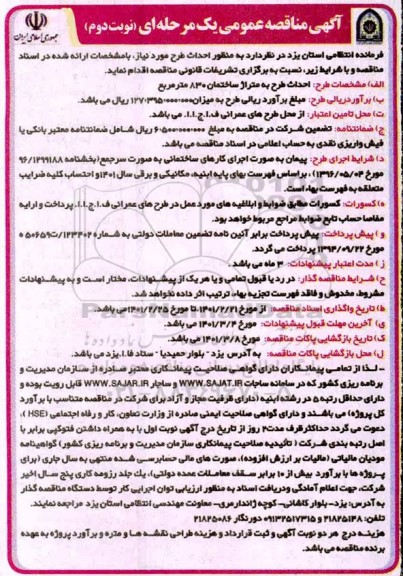 جمهوری اسلامی ایران
آگهی مناقصه عمومی یک مرحله ای (نوبت دوم)
فرمانده انتظامی استان یزد در نظردارد به منظور احداث طرح مورد نیاز، بامشخصات ارائه شده در اسناد
مناقصه و با شرایط زیر، نسبت به برگزاری تشریفات قانونی مناقصه اقدام نماید.
الف) مشخصات طرح: احداث طرح به متراژ ساختمان ۸۳۰ مترمربع
ب) برآوردریالی طرح: مبلغ برآورد ریالی طرح به میزان ۱۲۷،۳۹۵،۰۰۰،۰۰۰ ریال می باشد.
ت) محل تامین اعتبار: از محل طرح های عمرانی ف.ا.ج.ا.ا. می باشد.
ج) ضمانتنامه: تضمین شرکت در مناقصه به مبلغ ۶،۵۰۰،۰۰۰،۰۰۰ ریال شامل ضمانتنامه معتبر بانکی یا
فیش واریزی نقدی به حساب اعلامی در اسناد مناقصه می باشد.
د) شرایط اجرای طرح: پیمان به صورت اجرای کارهای ساختمانی به صورت سرجمع (بخشنامه ۹۶/۱۲۹۹۱۸۸
مورخ ۱۳۹۶/۰۵/۰۴)، براساس فهرست بهای پایه ابنیه، مکانیکی و برقی سال ۱۴۰۱ و احتساب کلیه ضرایب
متعلقه به فهرست بهاء است.
ه) کسورات: کسورات مطابق ضوابط و ابلاغیه های مورد عمل در طرح های عمرانی ف.ا.ج.ا.ا. پرداخت و ارایه
مفاصا حساب تابع ضوابط مراجع مربوط خواهد بود.
و) پیش پرداخت: پیش پرداخت برابر آئین نامه تضمین معاملات دولتی به شماره ۱۲۳۴۰۲/ت۵۰۶۵۹ ه
مورخ ۱۳۹۴/۰۹/۲۲ پرداخت می گردد.
ز) مدت اعتبار پیشنهادات: ۳ ماه می باشد.
ح) شرایط مناقصه گذار: در رد یا قبول تمامی و یا هر یک از پیشنهادات، مختار است و به پیشنهادات
مشروط، مخدوش و فاقد فهرست تجزیه بهاء ترتیب اثر داده نخواهد شد.
ط) تاریخ واگذاری اسناد مناقصه: از مورخ ۱۴۰۱/۲/۲۱ تا مورخ ۱۴۰۱/۲/۲۵ می باشد.
ی) آخرین مهلت قبول پیشنهادات: مورخ ۱۴۰۱/۳/۴ می باشد.
ک) تاریخ بازگشایی پاکات مناقصه: مورخ ۱۴۰۱/۳/۸ می باشد.
ل) محل بازگشایی پاکات مناقصه: به آدرس یزد - بلوار حمیدیا - ستاد ف.ا.یزد می باشد.
- لذا از تمامی پیمانکاران دارای گواهی صلاحیت پیمانکاری معتبر صادره از سازمان مدیریت و
برنامه ریزی کشور که در سامانه ساجات WWW.SAJAT.IR و ساجار WWW.SAJAR.IR قابل رویت بوده و
دارای حداقل رتبه ۵ در رشته ابنیه (دارای ظرفیت مجاز و آزاد برای شرکت در مناقصه متناسب با برآورد
کل پروژه) می باشند و دارای گواهی صلاحیت ایمنی صادره از وزارت تعاون، کار و رفاه اجتماعی (HSE)،
دعوت می گردد حداکثر ظرف مدت ۴ روز از تاریخ درج آگهی نوبت اول با به همراه داشتن فتوکپی برابر با
اصل رتبه بندی شرکت (تأئیدیه صلاحیت پیمانکاری سازمان مدیریت و برنامه ریزی کشور) گواهینامه
مودیان مالیاتی (مالیات بر ارزش افزوده)، صورت های مالی حسابرسی شده منتهی به سال جاری (برای
پروژه ها با برآورد بیش از ۱۰ برابر سقف معاملات عمده دولتی)، یک جلد رزومه کاری پنج سال اخیر
شرکت، جهت اعلام آمادگی و دریافت اسناد به منظور ارزیابی توان اجرایی کار توسط دستگاه مناقصه گذار
به آدرس: یزد- بلوار کاشانی- کوچه ژاندارمری- معاونت مهندسی انتظامی استان یزد مراجعه نمایند.
تلفن: ۲۱۸۲۵۱۴۸ و ۰۹۱۳۲۵۱۷۳۱۵ دورنگار ۲۱۸۲۵۰۸۶
هزینه درج هر دو نوبت آگهی و ثبت قرارداد و هزینه طراحی نقشه ها و متره و برآورد پروژه به عهده
برنده مناقصه می باشد.